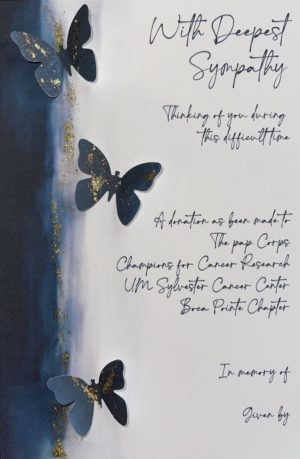 With Deepest
Sympathy
Thinking of you during
this difficult time
A donation as been made to
The pap Corps
Champions for Cancer Research
UM Sylvester Cancer Center
Boca Pointe Chapter
In memory of
Given by